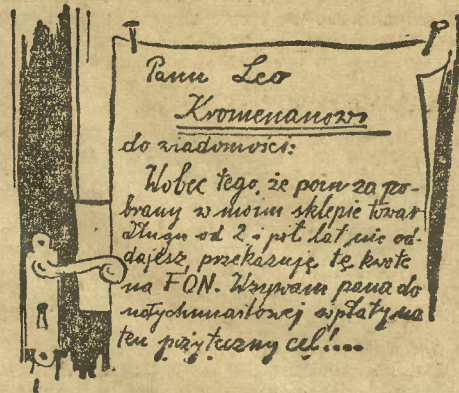 Panu Leo
Kromenanowi
do wiadomości:
Wobec tego, że pan za po-
brany w moim sklepie towar
długu od 2 i pół lat nie od-
dajesz, przekazuję tę kwotę
na FON. Wzywam pana do
natychmiastowej wpłaty na
ten pożyteczny cel!...